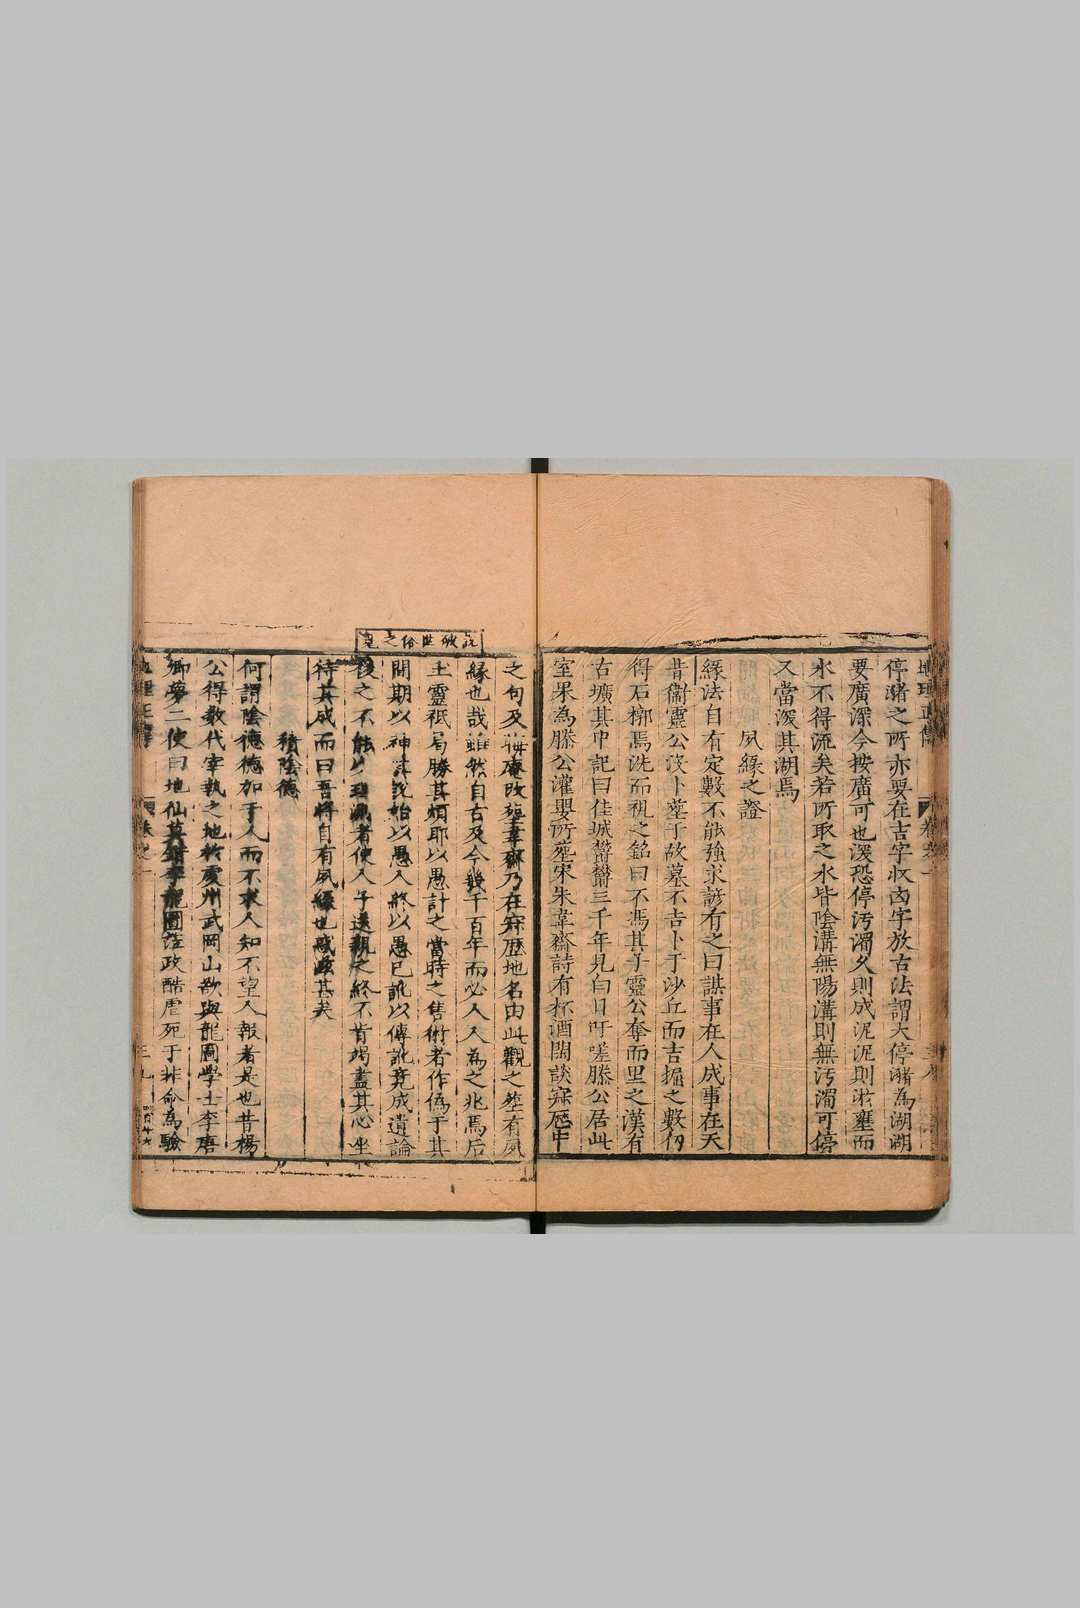 停瀦之所亦要在吉字收凶字放古法謂大停瀦為湖湖
要廣深今按廣可也深恐停污濁久則成泥泥則淤壅而
水不得流矣若所取之水皆陰溝無陽溝則無污濁可停
又當深其湖焉
夙緣之證
緣法自有定數不能強求諺有之曰謀事在人成事在天
昔衞靈公沒卜塟于故墓不吉卜于沙丘而吉掘之數仞
得石槨焉洗而視之銘曰不馮其子靈公奪而里之漢有
古壙其中記曰佳城鬱鬱三千年見白日吁嗟滕公居此
室果為滕公灌嬰所塟宋朱韋齋詩有杯酒閑談寂歷中
之句及晦庵改塟韋齋乃在寂歷地名由此觀之塟有夙
緣也哉雖然自古及今幾千百年而必人人為之兆焉后
土靈祇曷勝其煩耶以愚計之當時之售術者作偽于其
間期以神其說始以愚人終以愚己訛以傳訛竟成遺論
後之不能少理識者使人子送親之終不肯竭盡其心坐
待其成而曰吾將自有夙緣也惑茲甚矣
說破世俗之
積陰德
何謂陰德德加于人而不求人知不望人報者是也昔楊
公得教代宰執之地於虔州武岡山欲與龍圖學士李唐
卿夢二使曰地仙莫錯李龍圖詮政酷虐死于非命為驗
地理正傳
卷之一
三九